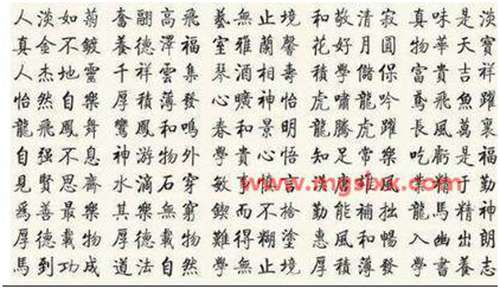 人淡如菊 奮翮高飛 藝無止境 和敬清寂 真味是淡
真金不鍍 養德澤福 室雅蘭馨 花好月圓 物華天寶
人杰地靈 千祥雲集 琴酒相壽 積學儲保 富貴吉祥
怡然自樂 厚積薄發 心曠神怡 虎嘯龍吟 鳶飛魚躍
龍飛鳳舞 鸞鳳和鳴 春和景明 龍騰虎躍 長風萬裏
自强不息 神游物外 學貴心悟 知足常樂 吃虧是福
見賢思齊 水滴石穿 精于勤
為善最樂 其樂無窮 而不捨 勤能補拙 龍馬精神
厚德載物 厚德載物 難得糊塗 惠風和暢 入幽出朗
馬到功成 道法自然 學無止境 厚積薄發 學書養志
www.mgslxx.com